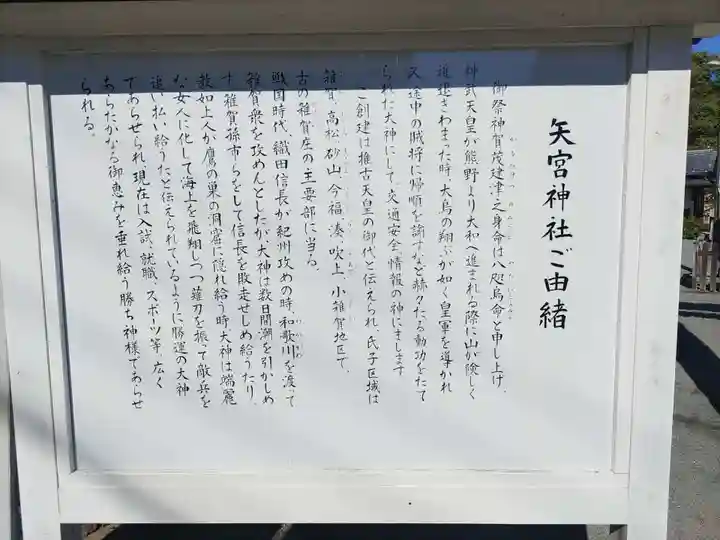 矢宮神社ご由緒
御祭神賀茂建津之身命は八咫烏命と申し上げ、
神武天皇が熊野より大和へ進まれる際に山が険しく
進退きわまった時、大烏の翔ぶが如く皇軍を導かれ
又途中の賊将に帰順を諭すなど赫々たる勲功をたて
られた大神にして、交通安全、情報の神にまします
ご創建は推古天皇の御代と伝えられ、氏子区域は
雑賀、高松、砂山、今福、湊、吹上、小雑賀地区で、
古の雑賀庄の主要部に当る。
戦国時代、織田信長が紀州攻めの時、和歌川を渡って
雑賀衆を攻めんとしたが、大神は数日間潮を引かしめ
ず、雑賀孫市らをして信長を敗走せしめ給うたり、
教如上人が鷹の巣の洞窟に隠れ給う時、大神は端麗
な女人に化して海上を飛翔しつつ薙刀を振って敵兵を
追い払い給うたと伝えられているように勝運の大神
であらせられ、現在は入試、就職、スポーツ等、広く
あらたかなる御恵みを垂れ給う勝ち神様であらせ
られる。